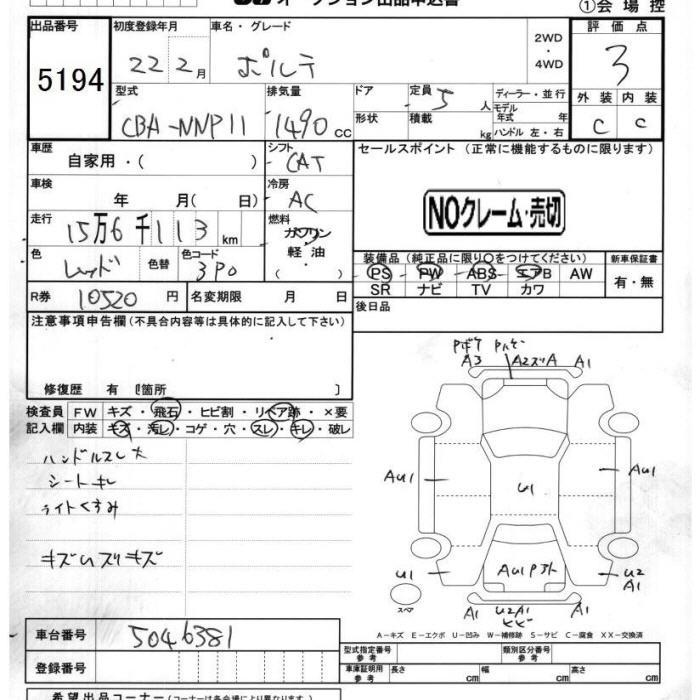 オークション出品申込書
①会場控
出品番号
5194
初度登録年月
22 2月
車名・グレード
ポルテ
2WD
・
4WD
評価点
3
外装 内装
C C
型式
CBA-NNP11
排気量
1490 cc
ドア
形状
定員 5 人
積載 kg
ディーラー・並行
モデル年式 年
ハンドル 左・右
車歴
自家用・( )
シフト
CAT
セールスポイント (正常に機能するものに限ります)
NOクレーム・売切
車検
年 月( 日)
冷房
AC
走行
15万6千113 km
燃料
ガソリン
軽油
( )
色
レッド
色替
色コード
3P0
装備品 (純正品に限り○をつけてください)
PS PW ABS エアB AW
SR ナビ TV カワ
新車保証書
有・無
R券 10520 円
名変期限 月 日
後日品
注意事項申告欄 (不具合内容等は具体的に記入して下さい)
修復歴 有 〔箇所 〕
検査員
記入欄
FW キズ・飛石・ヒビ割・リペア跡・×要
内装 キズ・汚レ・コゲ・穴・スレ・キレ・破レ
ハンドルスレ大
シートキレ
ライトくすみ
キズUズリキズ
A3 A2ズリA A1
AU1
AU1
U1
AU1
U1
U2
A1
スペア
A1
U2A1
ヒビ
A1
A-キズ E-エクボ U-凹み W-補修跡 S-サビ C-腐食 XX-交換済
車台番号
5046381
登録番号
型式指定番号
参考
類別区分番号
参考
車庫証明用
参考
長さ cm 幅 cm 高さ cm
希望出品コーナー (コーナーは各会場により異なります。)